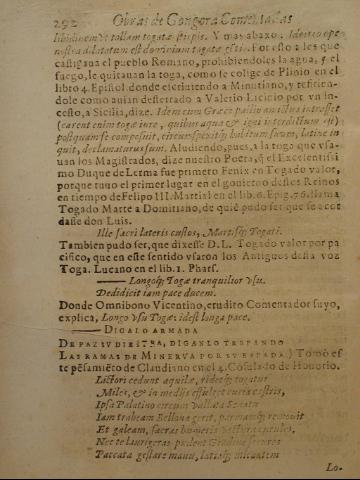 292 Obras de Gongora Comentadas
libidinem et tollam togatæ stirpis. Y mas abaxo. Ideirco ope
nostra dilatatum est dominium togatæ gētis. Por esso a les que
castigaua el pueblo Romano, prohibiendoles la agua, y el
fuego, le quitauan la toga, como se colige de Plinio en el
libro 4. Epistol. donde escriuiendo a Minutiano, y refirien-
dole como auian desterrado a Valerio Licinio por vn in-
cesto, a Sicilia, dize. Idem cum Græco pallio amictus intrasset
(carent enim togæ iure, quibus aqua & igni interdictum est)
postquam se composuit, circunspexitq; habitum suum, latine in
quit, declamaturus sum. Aludiendo, pues, a la toga que vsa-
uan los Magistrados, dize nuestro Poeta, q̃ el Excelentissi
mo Duque de Lerma fue primero Fenix en Togado valor,
porque tuuo el primer lugar en el gouierno destos Reinos
en tiempo de Felipo III. Martial en el lib. 6. Epig. 76. llama
Togado Marte a Domitiano, de quiē pudo ser que se acor
dasse don Luis.
Ille sacri lateris custos, Martisq; Togati.
Tambien pudo ser, que dixesse D. L. Togado valor por pa
cifico, que en este sentido vsaron los Antiguos desta voz
Toga. Lucano en el lib. 1. Phars.
Longoq; Togæ tranquilior vsu
Dedidicit iam pace ducem.
Donde Omnibono Vicentino, erudito Comentador suyo,
explica, Longo vsu Togæ: idest longa pace.
DIGALO ARMADA
DE PAZ SV DIESTRA, DIGANLO TREPANDO
LAS RAMAS DE MINERVA POR SV ESPADA.) Tomò es
te pēsamiēto de Claudiano en el 4. Cōsulado de Honorio.
Lictori cedunt aquilæ, ridetq; togatus
Miles, & in medijs effulget curia castris,
Ipsa Palatino circum vallata Senatu
Iam trabeam Bellona gerit, parmamq; remouit
Et galeam, sacras humeris
Nec te laurigeras pudent Gradiue secures
Paccata gestare manu, latiaq; micantem
Lo.